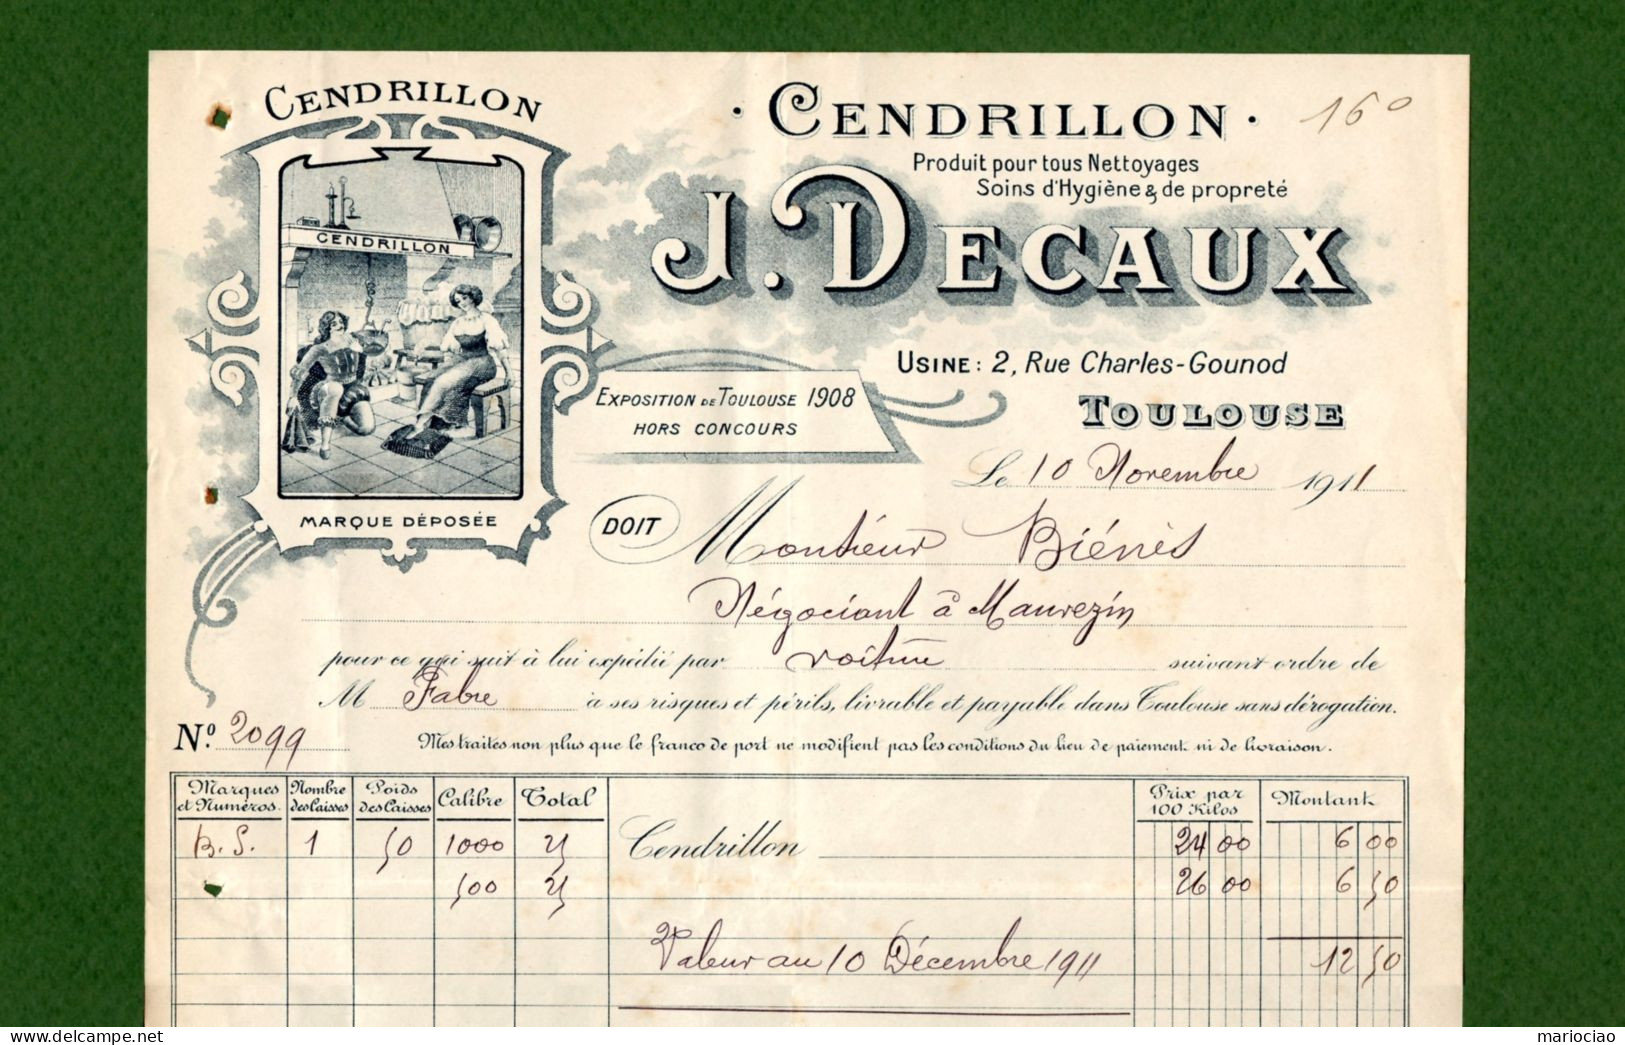 CENDRILLON
CENDRILLON
MARQUE DÉPOSÉE
· CENDRILLON ·
16⁰
Produit pour tous Nettoyages
Soins d'Hygiène & de propreté
J. DECAUX
USINE: 2, Rue Charles-Gounod
TOULOUSE
EXPOSITION DE TOULOUSE 1908
HORS CONCOURS
Le 10 Novembre 1911
DOIT Monsieur Biénès
Négociant à Mauvezin
pour ce qui suit à lui expédié par voiture suivant ordre de
M Fabre à ses risques et périls, livrable et payable dans Toulouse sans dérogation.
N° 2099
Mes traites non plus que le franco de port ne modifient pas les conditions du lieu de paiement ni de livraison.
Marques et Numéros. Nombre des Caisses Poids des Caisses Calibre Total Prix par 100 Kilos Montant
B. S. 1 50 1000 25 Cendrillon 24 00 6 00
500 25 26 00 6 50
Valeur au 10 Décembre 1911 12 50
www.delcampe.net
mariociao